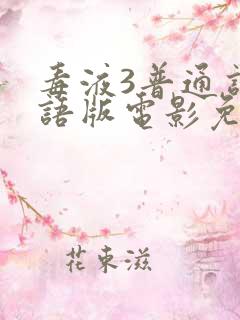 毒液3普通
語版電影免
花束滋